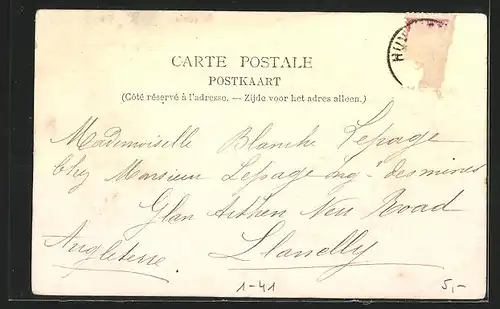 HUY
CARTE POSTALE
POSTKAART
(Côté réservé à l'adresse. — Zijde voor het adres alleen.)
Mademoiselle Blanche Lepage
Chez Monsieur Lepage Ing- des mines
Glan Arthen New Road
Llanelly
Angleterre
1-41
5,-